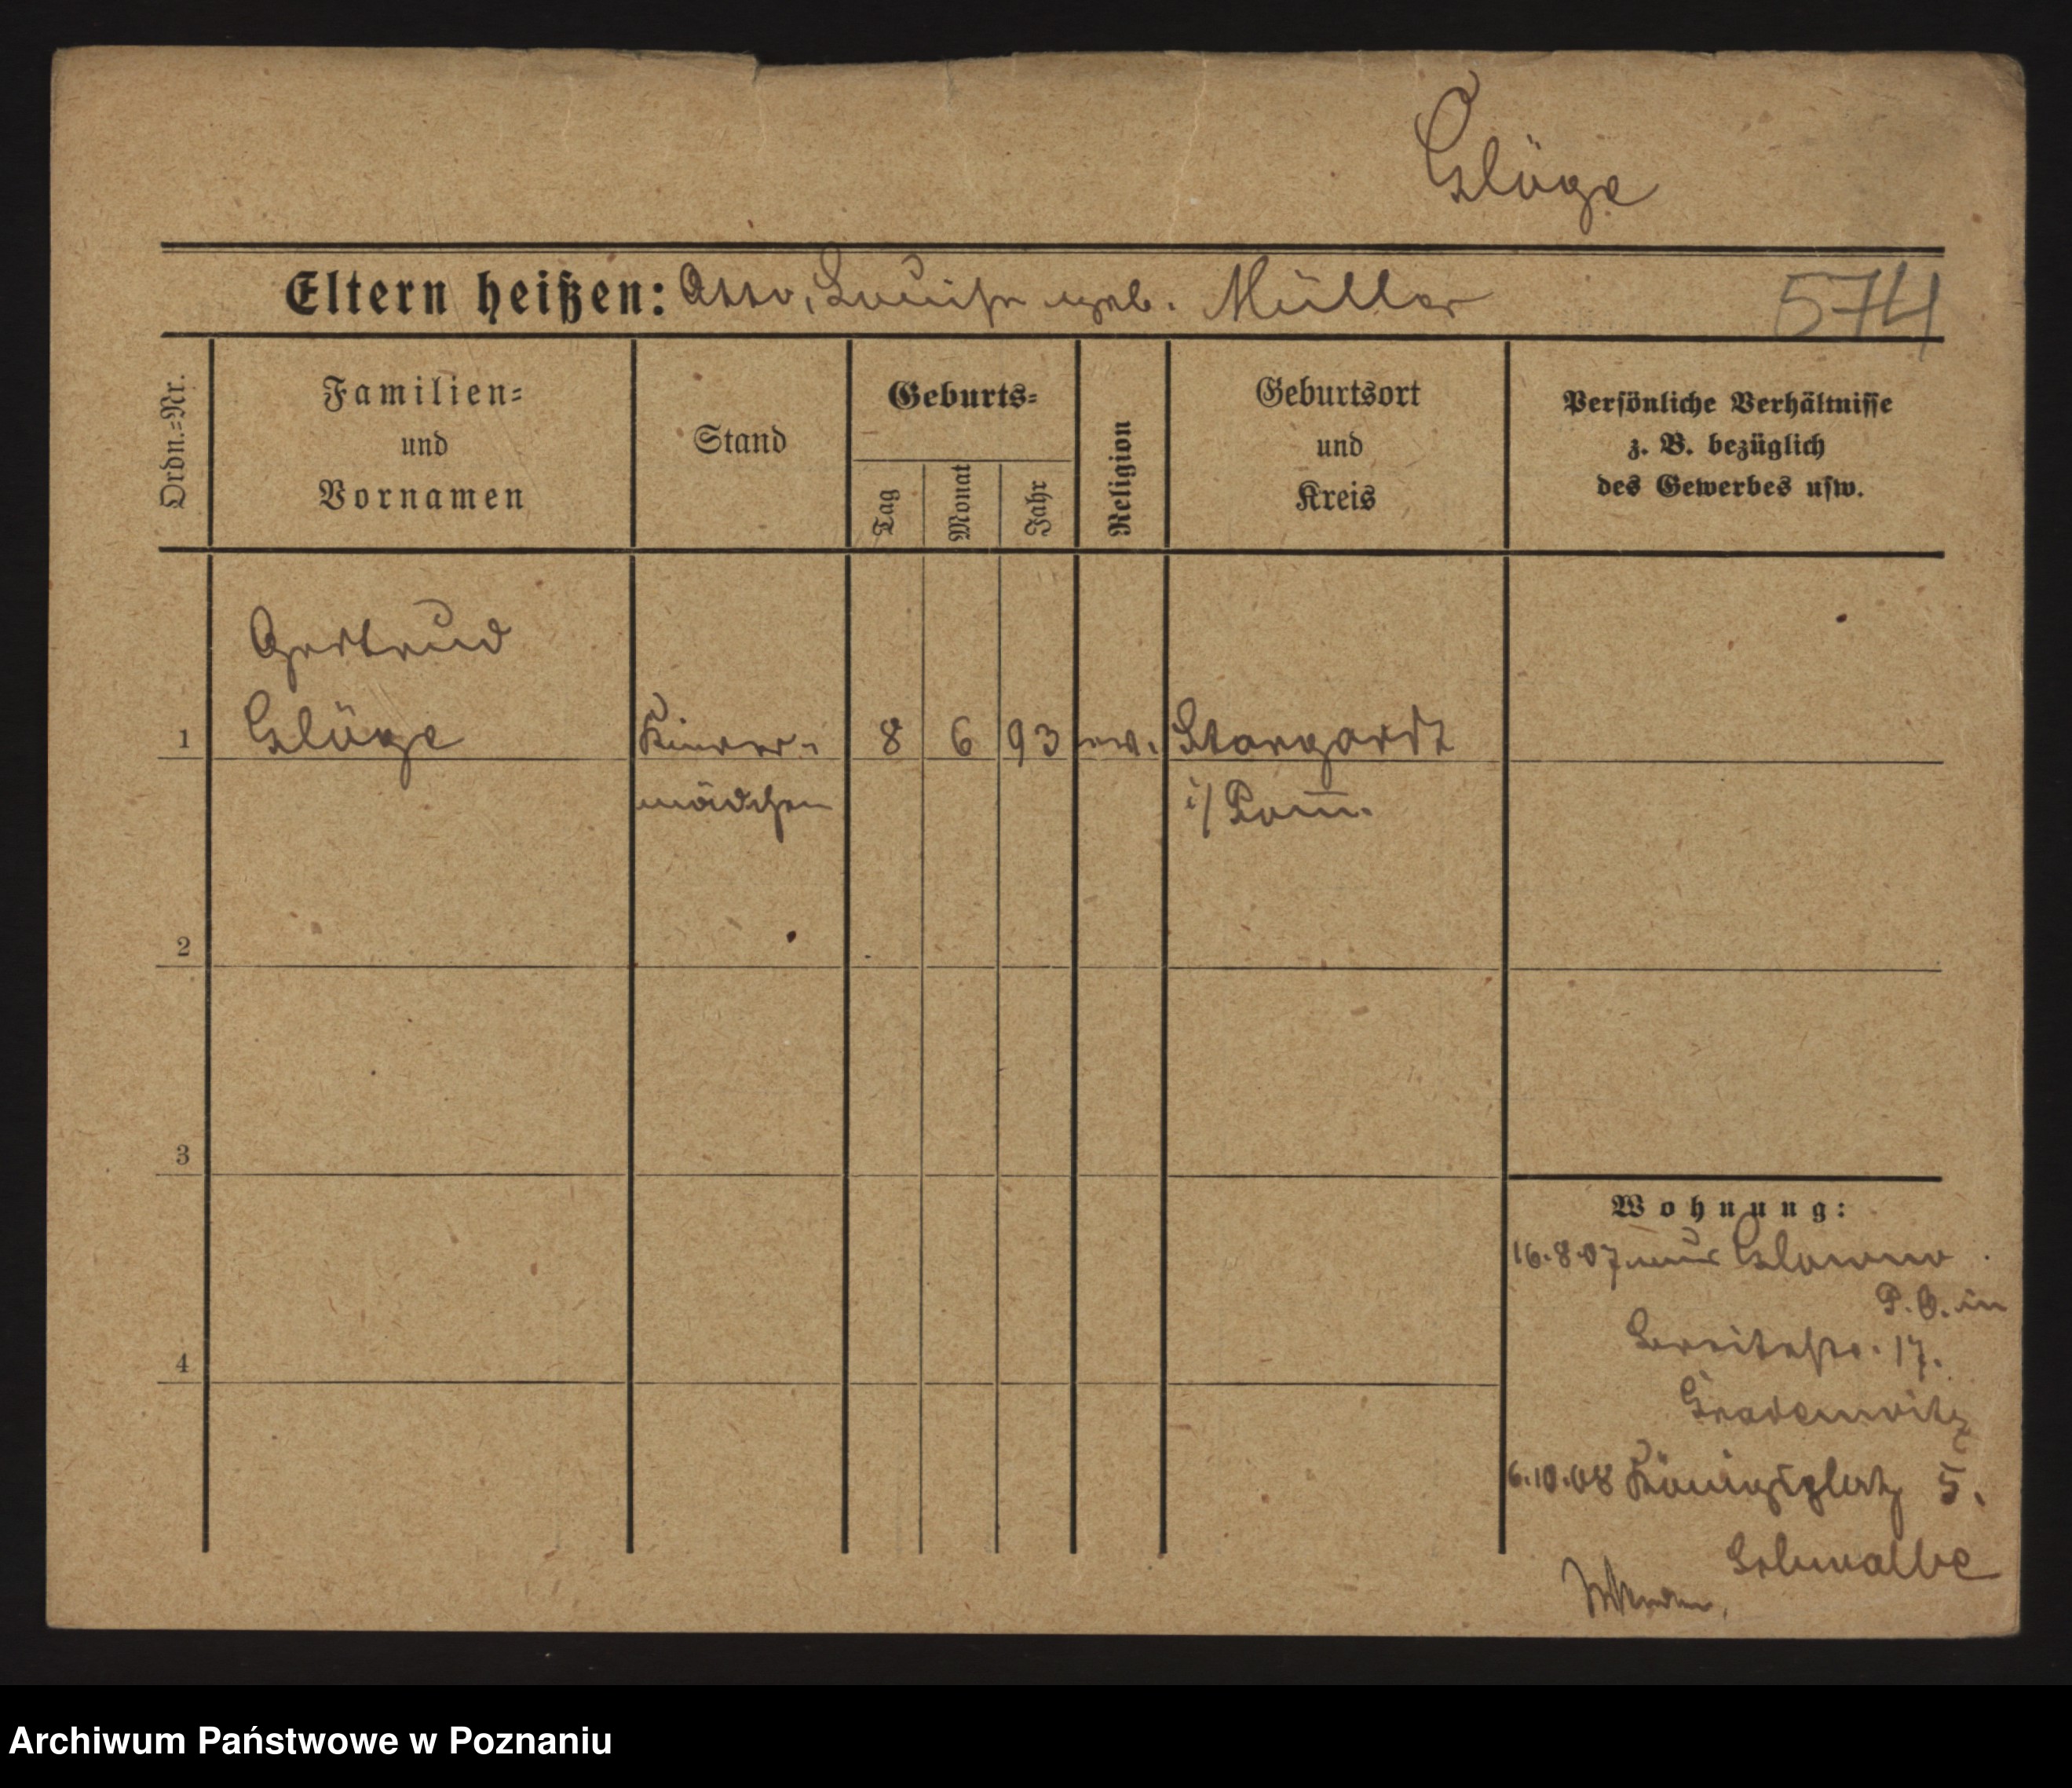 Glöge
Eltern heißen: Otto, Louise geb. Müller 574
Ordn.=Nr.
Familien=
und
Vornamen
Stand
Geburts=
Tag
Monat
Jahr
Religion
Geburtsort
und
Kreis
Persönliche Verhältnisse
z. B. bezüglich
des Gewerbes usw.
Gertrud
1 Glöge Kinder- 8 6 93 ev. Stargardt
mädchen i/ Pom̅.
2
3
4
Wohnung:
16.8.07 aus Glowno
P. O. in
Breitestr. 17.
6.10.08 Königsplatz 5.
Schwalbe
Archiwum Państwowe w Poznaniu